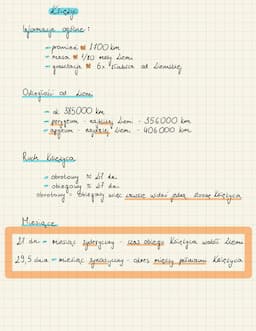 Księżyc
Informacje ogólne:
- promień ≈ 1700 km
- masa ≈ 1/80 masy Ziemi
- grawitacja ≈ 6x słabsza od ziemskiej
Odległość od Ziemi
- ok. 385000 km
- perygeum - najbliżej Ziemi - 356000 km
- apogeum - najdalej Ziemi - 406000 km
Ruch Księżyca
- obrotowy ≈ 27 dni
- obiegowy ≈ 27 dni
obrotowy = obiegowy więc zawsze widać jedną stronę Księżyca
Miesiące
27 dni - miesiąc syderyczny - czas obiegu Księżyca wokół Ziemi
29,5 dnia - miesiąc synodyczny - okres między pełniami Księżyca